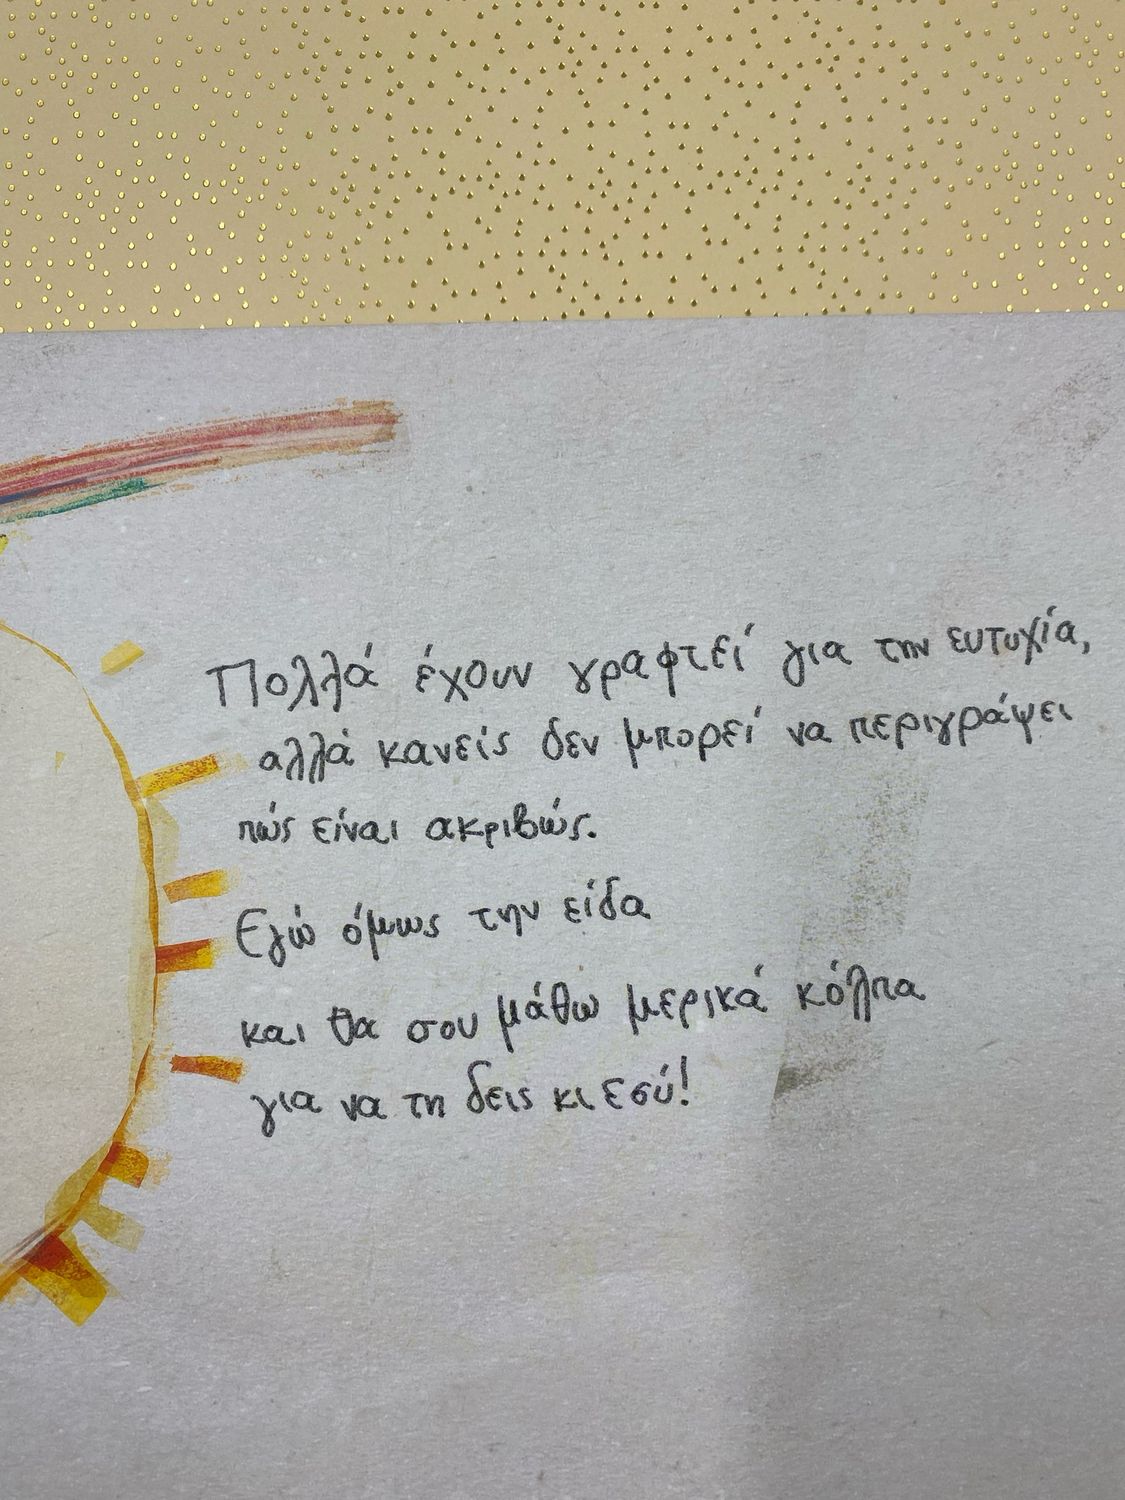 Πολλά έχουν γραφτεί για την ευτυχία,
αλλά κανείς δεν μπορεί να περιγράψει
πώς είναι ακριβώς.
Εγώ όμως την είδα
και θα σου μάθω μερικά κόλπα
για να τη δεις κι εσύ!